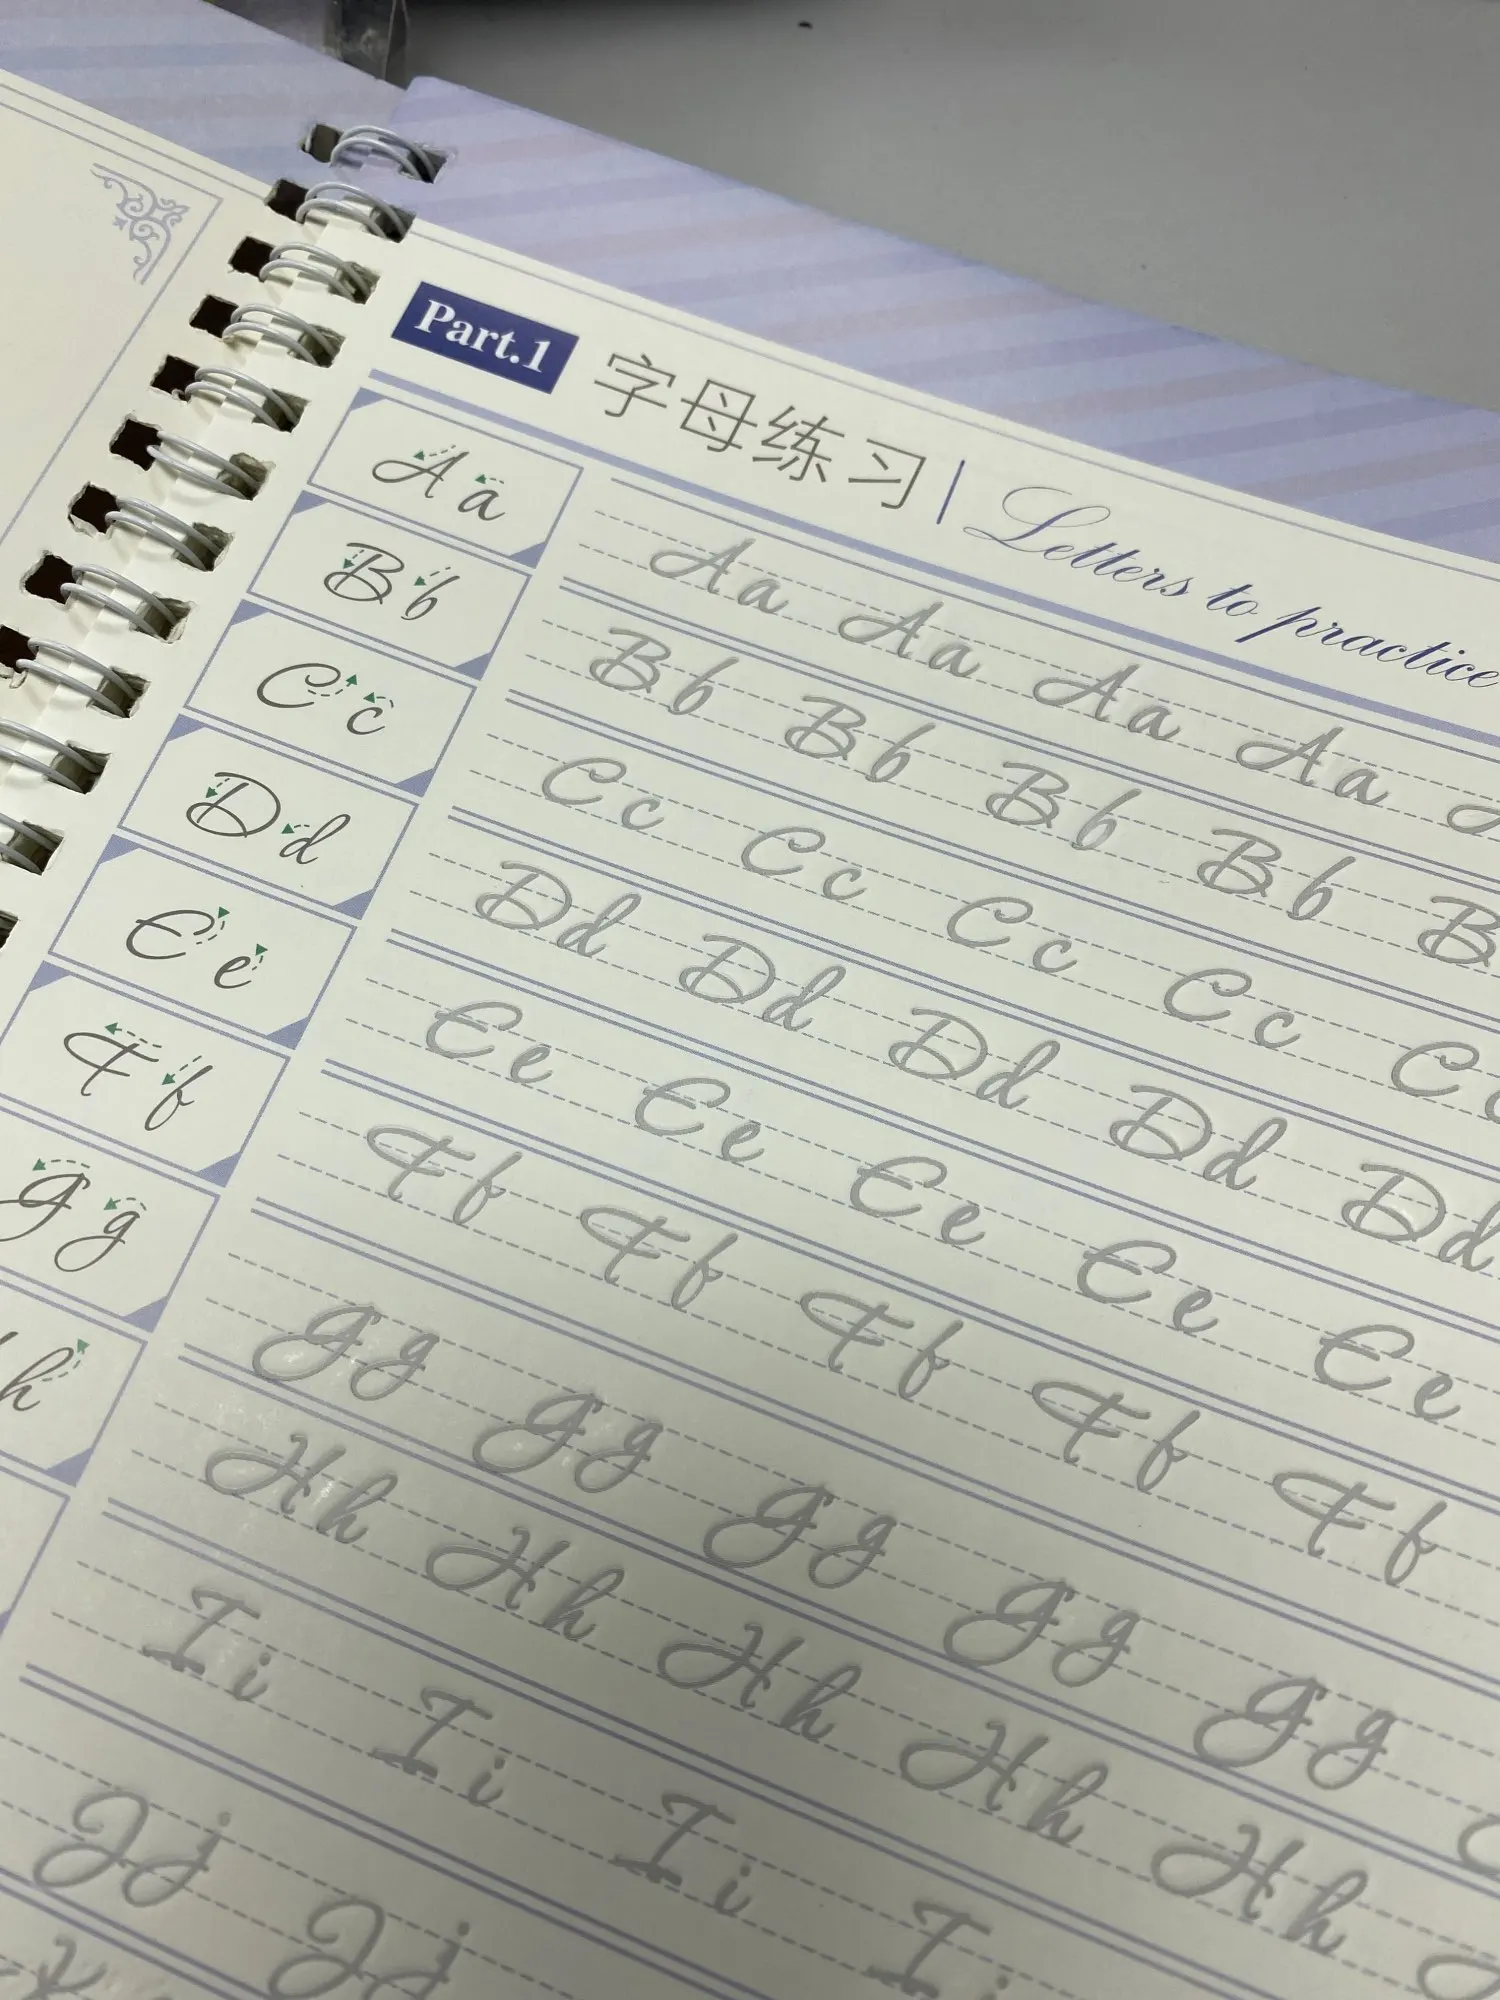 Part.1 字母练习 | Letters to practice
A a Aa Aa Aa Aa
B b Bb Bb Bb Bb B
C c Cc Cc Cc Cc C
D d Dd Dd Dd Dd Dd
E e Ee Ee Ee Ee Ee
F f Ff Ff Ff Ff Ff
G g Gg Gg Gg Gg Gg
h Hh Hh Hh Hh Hh
Ii Ii Ii I
Jj Jj